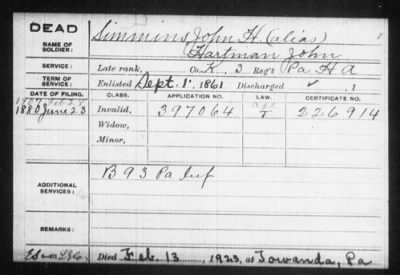 DEAD
Simmins John H. (alias)
NAME OF SOLDIER:
Hartman John
SERVICE:
Late rank, Co. K, 3 Reg't Pa H A
TERM OF SERVICE:
Enlisted Sept. 1, 1861 Discharged , 1
DATE OF FILING. CLASS. APPLICATION NO. LAW. CERTIFICATE NO.
1880 June 23 Invalid, 397064 226914
Widow,
Minor,
ADDITIONAL SERVICES:
B 93 Pa Inf
REMARKS:
Died Feb. 13, 1923, at Towanda, Pa